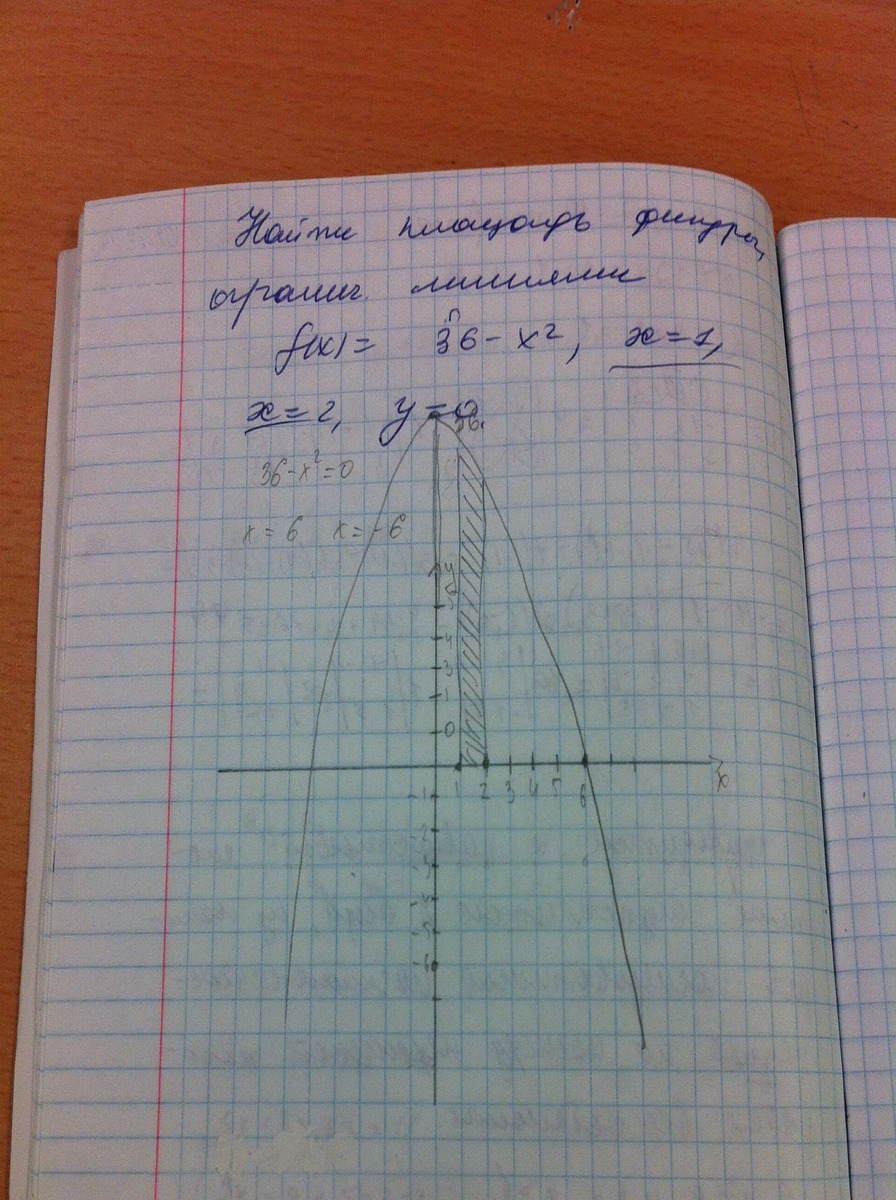 Найти площадь фигуры,
огранич. линиями
f(x) = 36 - x², x = 1,
x = 2, y = 0
36.
36-x²=0
x = 6 x = -6
y
5
4
3
1
0
1 2 3 4 5 6 x
-1
-2
-3
-4
-5
-6